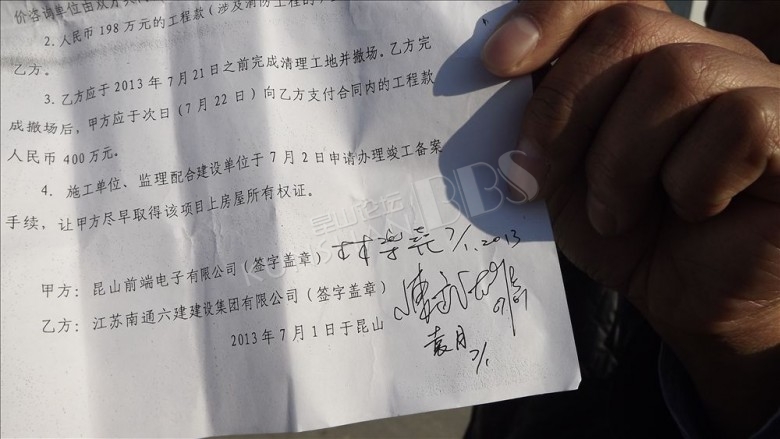 价咨询单位由双方共
2.人民币 198 万元的工程款（涉及消防工程的
乙方。
3.乙方应于 2013 年 7 月 21 日之前完成清理工地并撤场。乙方完
成撤场后，甲方应于次日（7 月 22 日）向乙方支付合同内的工程款
人民币 400 万元。
4. 施工单位、监理配合建设单位于 7 月 2 日申请办理竣工备案
手续，让甲方尽早取得该项目上房屋所有权证。
昆山论坛
BBS
甲方：昆山前端电子有限公司（签字盖章） 7/1. 2013
乙方：江苏南通六建建设集团有限公司（签字盖章）
2013 年 7 月 1 日于昆山
袁月 7/1